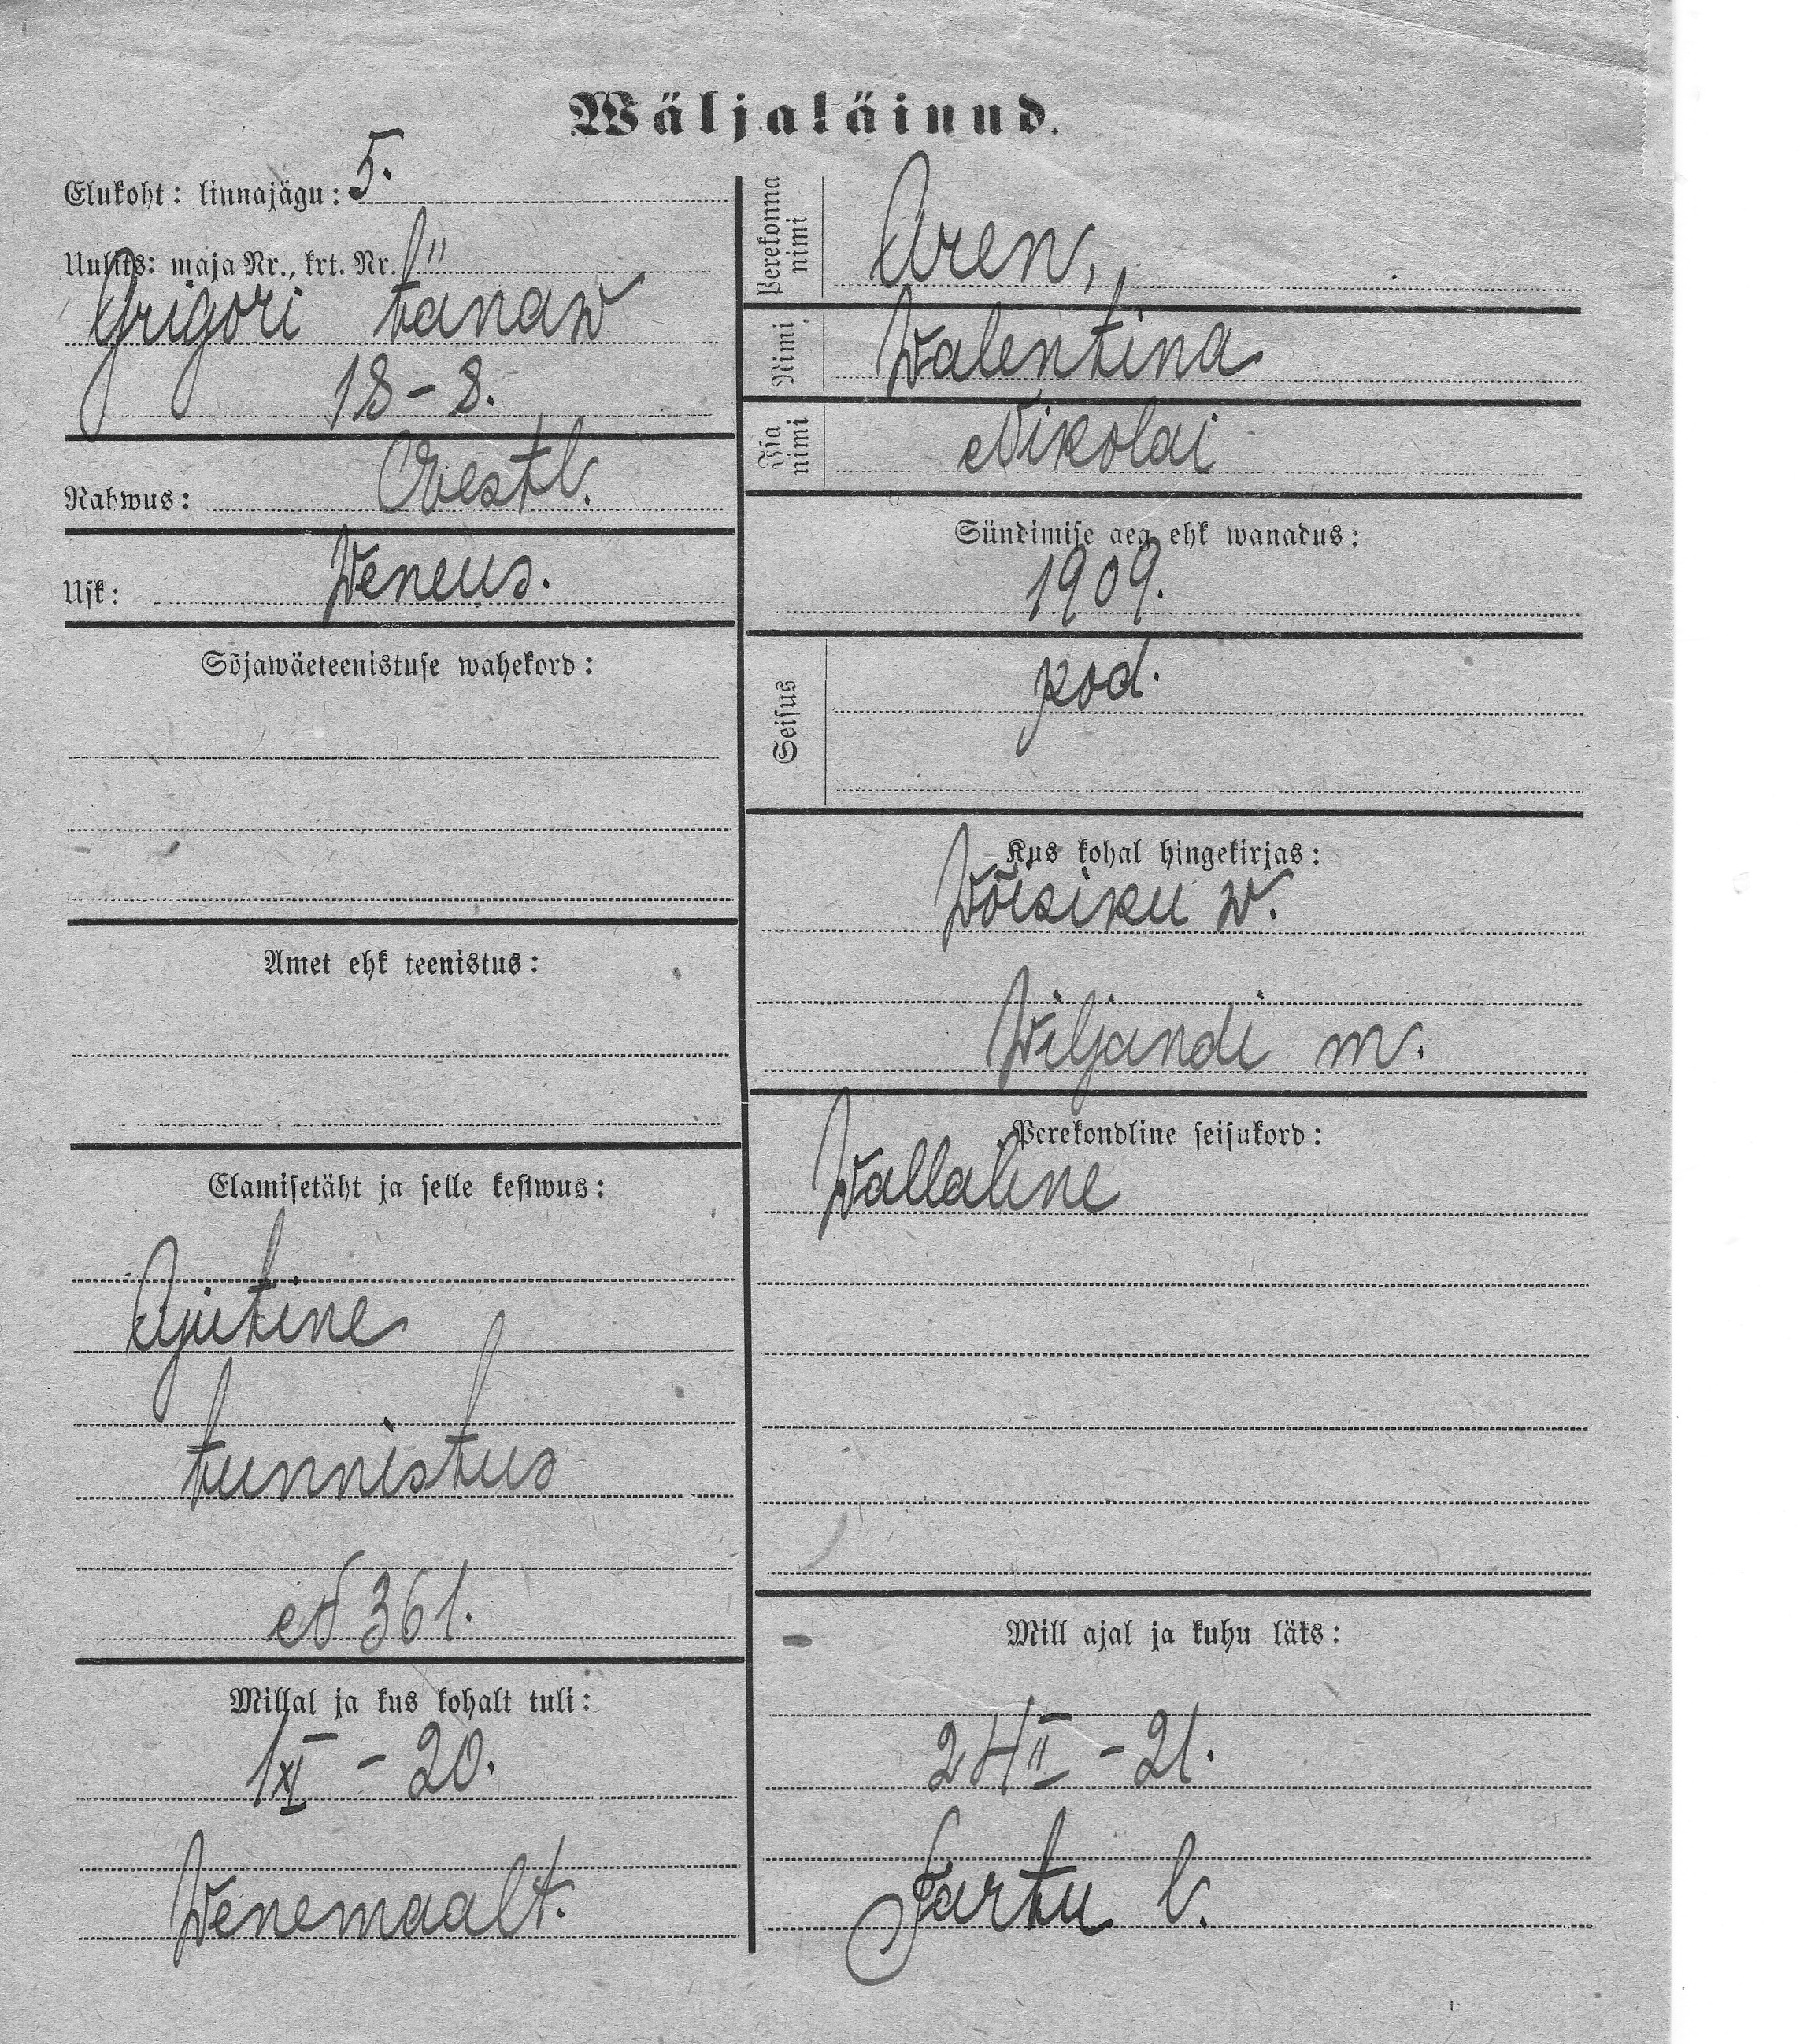 Wäljaläinud.
Elukoht: linnajägu: 5.
Uulits: maja Nr., krt. Nr.
Grigori tänaw
18-8.
Rahwus: Eestl.
Usk: Weneus.
Sõjawäeteenistuse wahekord:
Amet ehk teenistus:
Elamisetäht ja selle kestwus:
Ajutine
tunnistus
№ 361.
Millal ja kus kohalt tuli:
1 XI - 20.
Wenemaalt.
Perekonna nimi
Aren,
Nimi
Walentina
Isa nimi
Nikolai
Sündimise aeg ehk wanadus:
1909.
Seisus
kod.
Kus kohal hingekirjas:
Wõisiku w.
Wiljandi m.
Perekondline seisukord:
Wallaline
Mill ajal ja kuhu läks:
24 II - 21.
Tartu l.